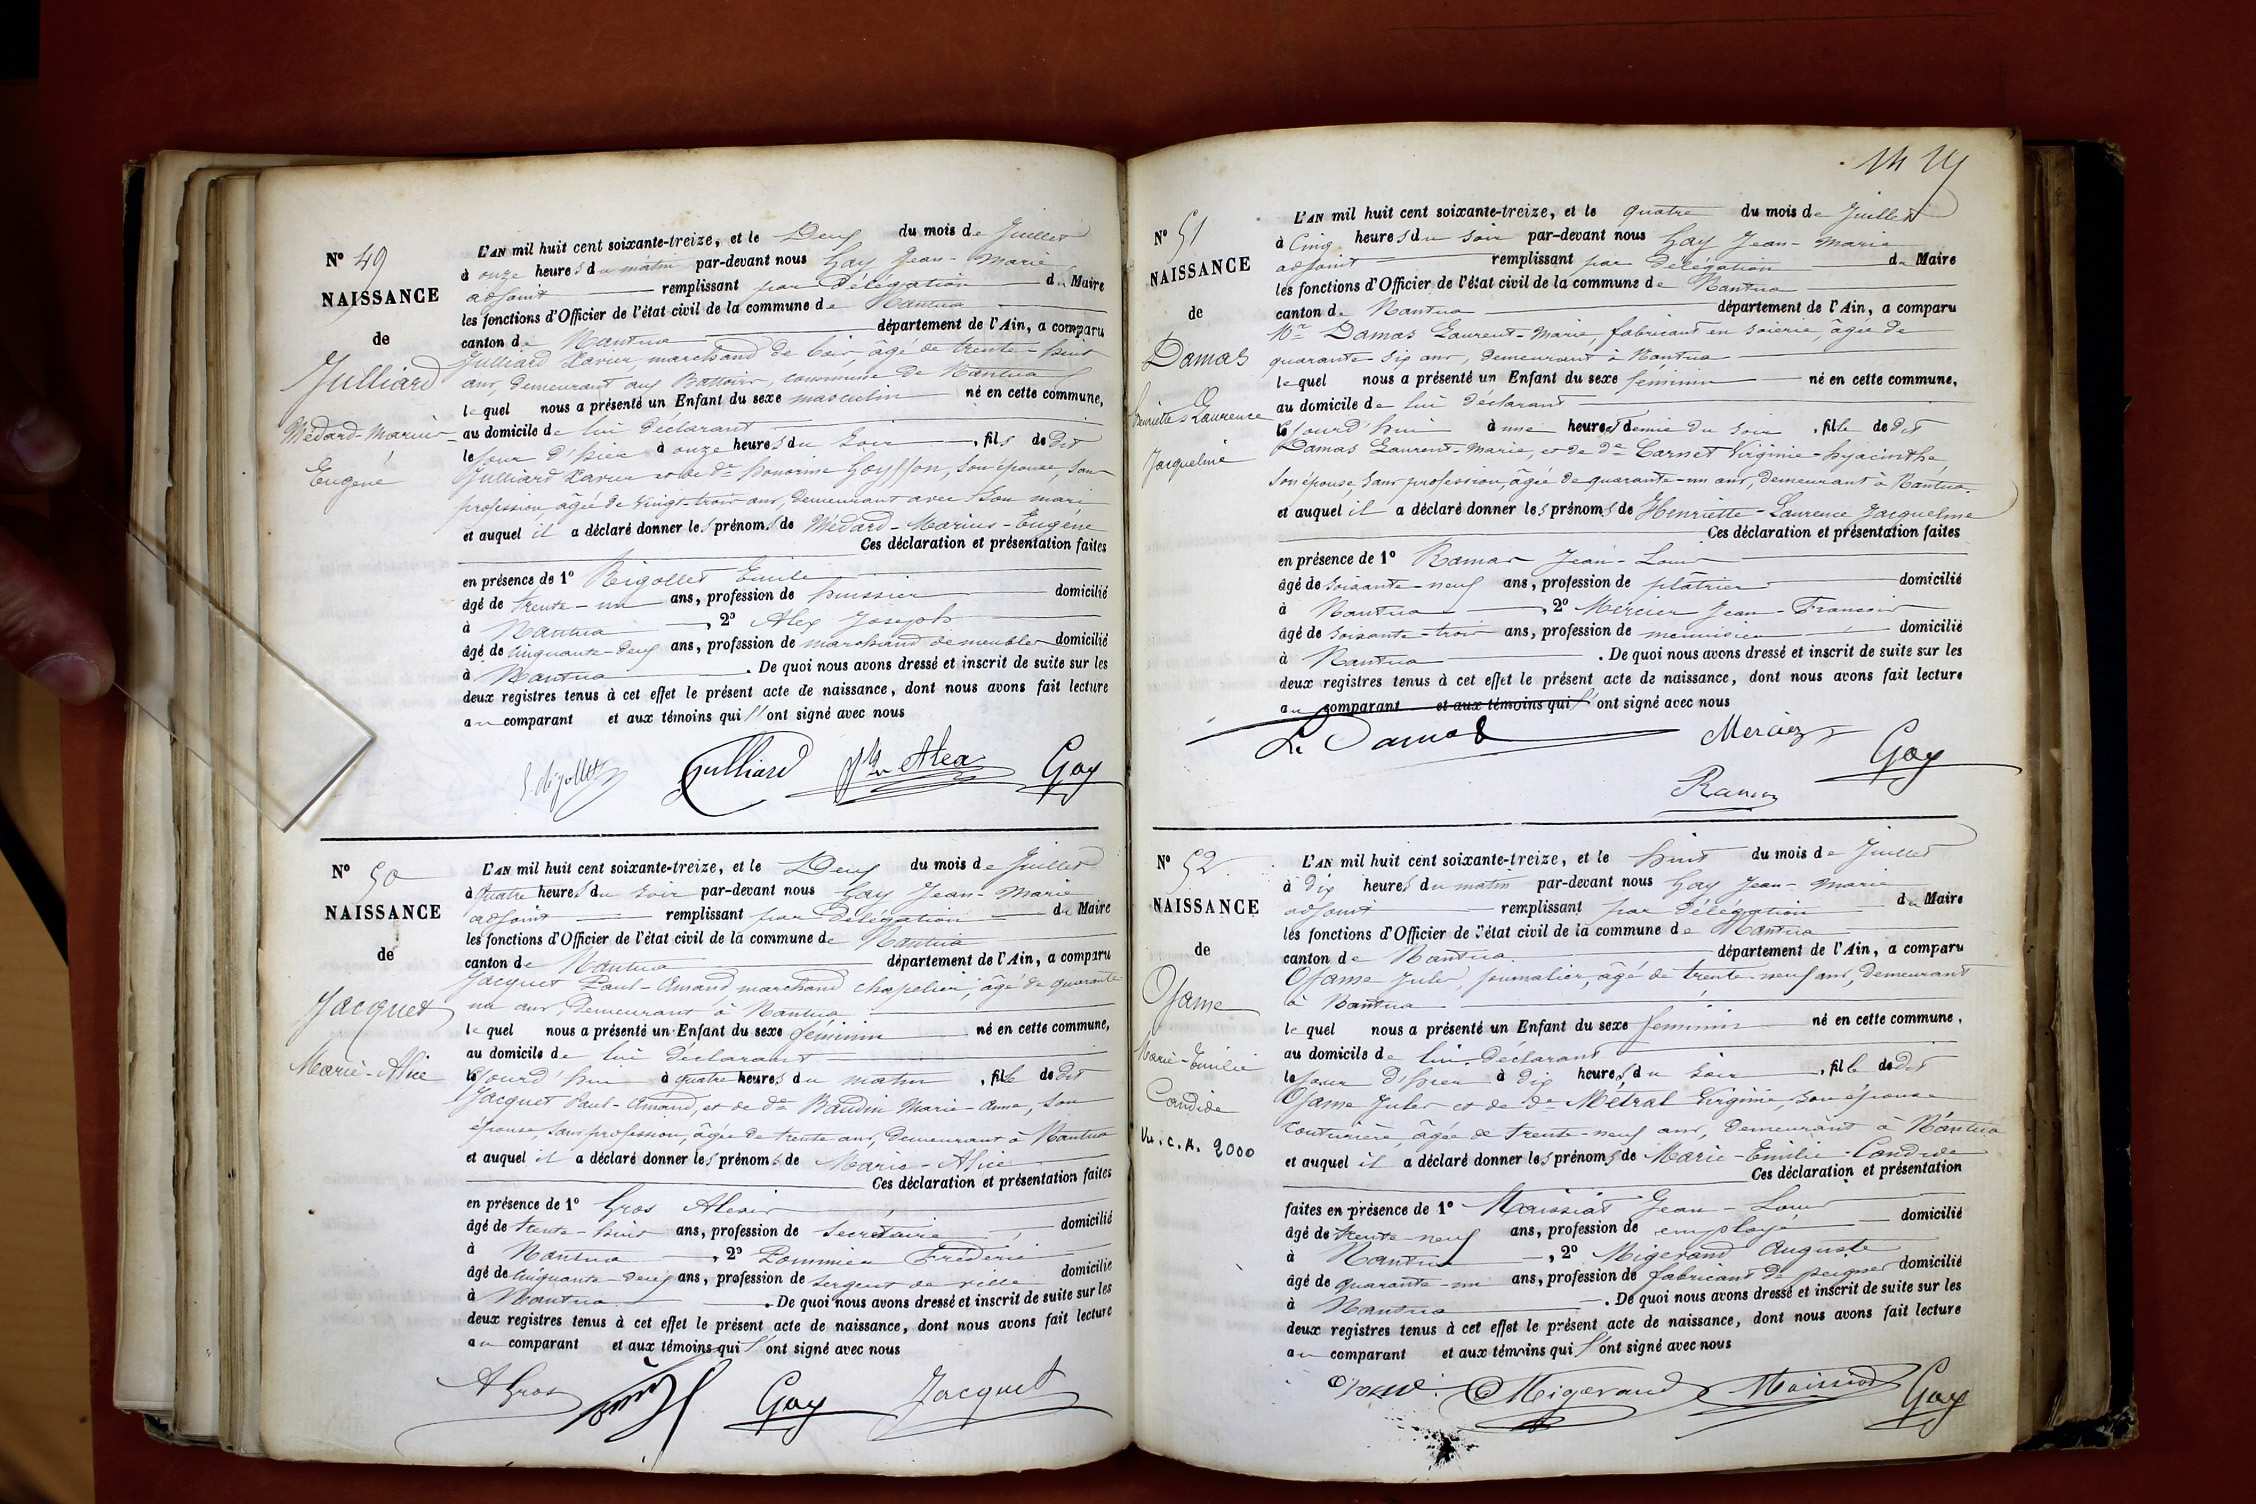 N° 49
NAISSANCE
de
Julliard
Médard-Marius
Eugène
L'AN mil huit cent soixante-treize, et le Deux du mois de Juillet
à onze heures du matin par-devant nous Gay Jean-Marie
adjoint remplissant par délégation du Maire
les fonctions d'Officier de l'état civil de la commune de Nantua
canton de Nantua département de l'Ain, a comparu
Julliard Xavier, marchand de bois, âgé de trente-huit
ans, demeurant aux Battoirs, commune de Nantua
lequel nous a présenté un Enfant du sexe masculin né en cette commune,
au domicile de lui déclarant
le jour d'hier à onze heures du soir, fils de dit
Julliard Xavier et de de honorine Goyffon, son épouse, sans
profession, âgée de vingt-trois ans, demeurant avec son mari
et auquel il a déclaré donner les prénoms de Médard-Marius-Eugène
Ces déclaration et présentation faites
en présence de 1° Rigollet Emile
âgé de trente-un ans, profession de huissier domicilié
à Nantua, 2° Alex Joseph
âgé de cinquante-deux ans, profession de marchand de meubles domicilié
à Nantua. De quoi nous avons dressé et inscrit de suite sur les
deux registres tenus à cet effet le présent acte de naissance, dont nous avons fait lecture
au comparant et aux témoins qui l'ont signé avec nous
Rigollet Julliard Alex Gay
N° 50
NAISSANCE
de
Jacquet
Marie-Alice
L'AN mil huit cent soixante-treize, et le Deux du mois de Juillet
à quatre heures du soir par-devant nous Gay Jean-Marie
adjoint remplissant par délégation du Maire
les fonctions d'Officier de l'état civil de la commune de Nantua
canton de Nantua département de l'Ain, a comparu
Jacquet Paul-Amand marchand chapelier, âgé de quarante
un ans, demeurant à Nantua
lequel nous a présenté un Enfant du sexe féminin né en cette commune,
au domicile de lui déclarant
le jourd'hui à quatre heures du matin, fille de dit
Jacquet Paul-Amand, et de de Baudin Marie-Anne, son
épouse, sans profession, âgée de trente ans, demeurant à Nantua
et auquel il a déclaré donner les prénoms de Marie-Alice
Ces déclaration et présentation faites
en présence de 1° Gros Alexis
âgé de trente-huit ans, profession de Secrétaire domicilié
à Nantua, 2° Pommier Frédéric
âgé de cinquante-deux ans, profession de sergent de ville domicilié
à Nantua. De quoi nous avons dressé et inscrit de suite sur les
deux registres tenus à cet effet le présent acte de naissance, dont nous avons fait lecture
au comparant et aux témoins qui l'ont signé avec nous
A Gros Gay Jacquet
N° 51
NAISSANCE
de
Damas
Henriette Laurence
Jacqueline
L'AN mil huit cent soixante-treize, et le quatre du mois de Juillet
à cinq heures du soir par-devant nous Gay Jean-Marie
adjoint remplissant par délégation du Maire
les fonctions d'Officier de l'état civil de la commune de Nantua
canton de Nantua département de l'Ain, a comparu
Mr Damas Laurent-Marie, fabricant en soierie, âgé de
quarante-six ans, demeurant à Nantua
lequel nous a présenté un Enfant du sexe féminin né en cette commune,
au domicile de lui déclarant
le jourd'hui à une heure et demie du soir, fille de dit
Damas Laurent-Marie, et de de Carnet Virginie-hyacinthe
son épouse, sans profession, âgée de quarante-un ans, demeurant à Nantua.
et auquel il a déclaré donner les prénoms de Henriette-Laurence Jacqueline
Ces déclaration et présentation faites
en présence de 1° Ramas Jean-Louis
âgé de soixante-neuf ans, profession de plâtrier domicilié
à Nantua, 2° Mercier Jean-François
âgé de soixante-trois ans, profession de menuisier domicilié
à Nantua. De quoi nous avons dressé et inscrit de suite sur les
deux registres tenus à cet effet le présent acte de naissance, dont nous avons fait lecture
au comparant et aux témoins qui l'ont signé avec nous
L. Damas Mercier Gay
N° 52
NAISSANCE
de
Ojame
Marie-Emilie
Candide
Vu. C. A. 2000
L'AN mil huit cent soixante-treize, et le huit du mois de Juillet
à dix heures du matin par-devant nous Gay Jean-Marie
adjoint remplissant par délégation du Maire
les fonctions d'Officier de l'état civil de la commune de Nantua
canton de Nantua département de l'Ain, a comparu
Ojame Jules, journalier, âgé de trente-neuf ans, demeurant
à Nantua
lequel nous a présenté un Enfant du sexe féminin né en cette commune,
au domicile de lui déclarant
le jour d'hier à dix heures du soir, fille de dit
Ojame Jules et de de Métral Virginie, son épouse
couturière, âgée de trente-neuf ans, demeurant à Nantua
et auquel il a déclaré donner les prénoms de Marie-Emilie-Candide
Ces déclaration et présentation
faites en présence de 1° Moissiat Jean-Louis
âgé de trente-neuf ans, profession de employé domicilié
à Nantua, 2° Migerand Auguste
âgé de quarante-un ans, profession de fabricant de peignes domicilié
à Nantua. De quoi nous avons dressé et inscrit de suite sur les
deux registres tenus à cet effet le présent acte de naissance, dont nous avons fait lecture
au comparant et aux témoins qui l'ont signé avec nous
Migerand Moissiat Gay